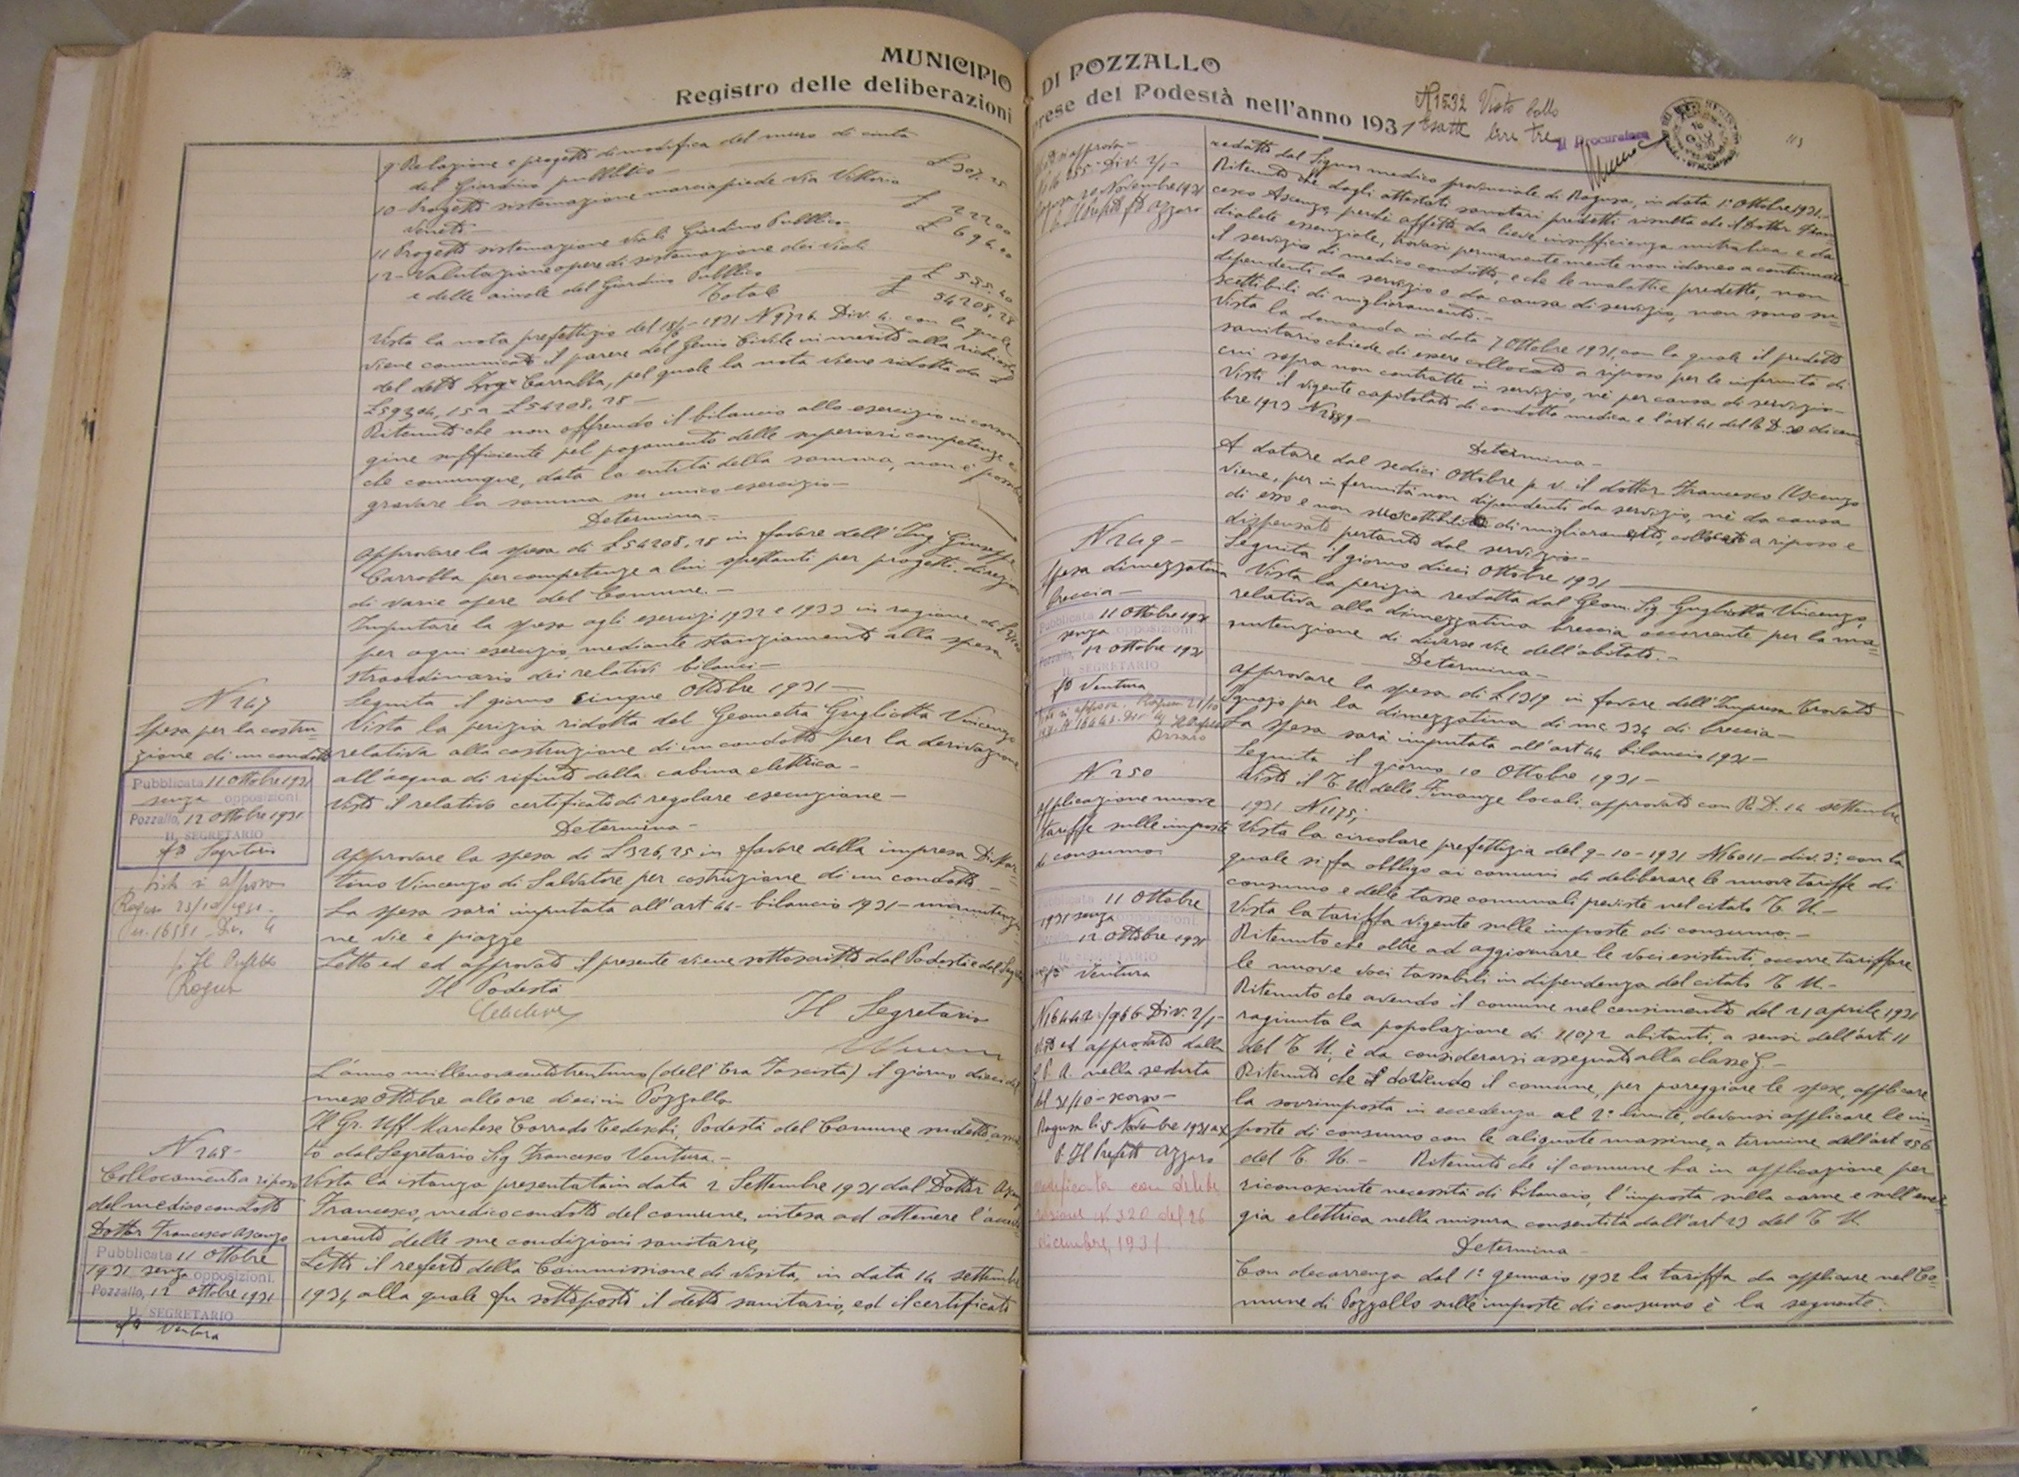 MUNICIPIO DI POZZALLO
Registro delle deliberazioni prese del Podestà nell'anno 1931
9 Relazione e progetto di modifica del muro di cinta
del Giardino pubblico — £ 307.25
10- Progetto sistemazione marciapiede Via Vittorio
Veneto — £ 2220
11 Progetto sistemazione viali Giardino Pubblico £ 694
12- Valutazione opere di sistemazione dei viali
e delle aiuole del Giardino Pubblico £ 555.40
Totale £ 54208,28
Vista la nota prefettizia del 1931 N 9726 Div. 4. con la quale
viene comunicato il parere del Genio Civile in merito alla richiesta
del detto Ing. Carrabba, pel quale la nota viene ridotta da
£ 59304,15 a £ 54208,28 —
Ritenuto che non offrendo il bilancio dello esercizio in corso
gine sufficiente pel pagamento delle superiori competenze e
che comunque, data la entità della somma, non è possibile
gravare la somma su unico esercizio —
Determina —
Approvare la spesa di £ 54208,28 in favore dell'Ing Giuseppe
Carrabba per competenze a lui spettanti per progetti, direzione
di varie opere del Comune. —
Imputare la spesa agli esercizi 1932 e 1933 in ragione di
per ogni esercizio, mediante stanziamento alla spesa
straordinaria dei relativi bilanci —
Seguita il giorno cinque Ottobre 1931 —
N 247
Spesa per la costru-
zione di un condotto
Pubblicata 11 Ottobre 1931
senza opposizioni.
Pozzallo, 12 Ottobre 1931
IL SEGRETARIO
Vista la perizia ridotta del Geometra Gugliotta Vincenzo
relativa alla costruzione di un condotto per la derivazione
all'acqua di rifiuto della cabina elettrica —
Visto il relativo certificato di regolare esecuzione —
Determina —
Approvare la spesa di £ 326,25 in favore della impresa Di Mar-
tino Vincenzo di Salvatore per costruzione di un condotto —
La spesa sarà imputata all'art 44 - bilancio 1931 - manutenzio-
ne vie e piazze
Letto ed ed approvato il presente viene sottoscritto dal Podestà e dal Segretario
Il Podestà
Il Segretario
Visto si approva
Ragusa 23/10/1931
L'anno millenovecentotrentuno (dell'Era Fascista) il giorno dieci del
mese Ottobre alle ore dieci in Pozzallo
Il Gr. Uff Marchese Corrado Tedeschi, Podestà del Comune suddetto assisti-
to dal Segretario Sig Francesco Ventura. —
N 248 -
Collocamento a riposo
del medico condotto
Dottor Francesco Ascenzo
Pubblicata 11 Ottobre
1931 senza opposizioni.
Pozzallo, 12 Ottobre 1931
IL SEGRETARIO
fto Ventura
Vista la istanza presentata in data 2 Settembre 1931 dal Dottor Ascenzo
Francesco, medico condotto del comune, intesa ad ottenere l'accerta-
mento delle sue condizioni sanitarie,
Letto il referto della Commissione di visita, in data 14 settembre
1931, alla quale fu sottoposto il detto sanitario, ed il certificato
Visto Bollo
Esatte lire tre
Il Procuratore
113
Visto si approva -
Ragusa 22 Novembre 1931
redatto dal Signor medico provinciale di Ragusa, in data 1° Ottobre 1931.-
Ritenuto che dagli attestati sanitari predetti risulta che il Dottor Fran-
cesco Ascenzo, perchè affetto da lieve insufficienza mitralica e da
diabete essenziale, trovasi permanentemente non idoneo a continuare
il servizio di medico condotto, e che le malattie predette, non
dipendenti da servizio o da causa di servizio, non sono su-
scettibili di miglioramento. —
Vista la domanda in data 7 Ottobre 1931, con la quale il predetto
sanitario chiede di essere collocato a riposo per le infermità di
cui sopra non contratte in servizio, nè per causa di servizio —
Visti il vigente capitolato di condotta medica e l'art 41 del R D. 30 dicem-
bre 1923 N 2889 —
Determina —
A datare dal sedici Ottobre p. v. il dottor Francesco Ascenzo
viene, per infermità non dipendenti da servizio, nè da causa
di esso e non suscettibili di miglioramento, collocato a riposo e
dispensato pertanto dal servizio —
Seguita il giorno dieci Ottobre 1931
N 249 —
Spesa dimezzatura
breccia —
Pubblicata 11 Ottobre 1931
senza opposizioni.
Pozzallo, 12 Ottobre 1931
IL SEGRETARIO
fto Ventura
Vista la perizia redatta dal Geom. Sig Gugliotta Vincenzo,
relativa alla dimezzatura breccia occorrente per la ma-
nutenzione di diverse vie dell'abitato. —
Determina —
Approvare la spesa di £ 1319 in favore dell'Impresa Trovato
Ignazio per la dimezzatura di mc 334 di breccia —
La spesa sarà imputata all'art 44 bilancio 1931 —
Seguita il giorno 10 Ottobre 1931 —
N 250
Applicazione nuove
tariffe sulle imposte
di consumo.
11 Ottobre
1931 senza opposizioni.
12 Ottobre 1931
IL SEGRETARIO
fto Ventura
Visto il T. U. delle Finanze locali, approvato con R. D. 14 settembre
1931 N 1175;
Vista la circolare prefettizia del 9-10-1931 N 16011 - div. 3; con la
quale si fa obbligo ai comuni di deliberare le nuove tariffe di
consumo e delle tasse comunali previste nel citato T. U. —
Vista la tariffa vigente sulle imposte di consumo. —
Ritenuto che oltre ad aggiornare le voci esistenti, occorre tariffare
le nuove voci tassabili in dipendenza del citato T. U. —
Ritenuto che avendo il comune nel censimento del 21 aprile 1931
raggiunto la popolazione di 11072 abitanti, a sensi dell'art. 11
del T U, è da considerarsi assegnato alla classe G —
Ritenuto che dovendo il comune, per pareggiare le spese, applicare
la sovrimposta in eccedenza al 2° limite, dovensi applicare le im-
poste di consumo con le aliquote massime, a termine dell'art. 256
del T. U. — Ritenuto che il comune ha in applicazione per
riconosciute necessità di bilancio, l'imposta sulla carne e sull'ener-
gia elettrica nella misura consentita dall'art 23 del T U.
Determina
Con decorrenza dal 1° gennaio 1932 la tariffa da applicare nel Co-
mune di Pozzallo sulle imposte di consumo è la seguente:
N 16442/966 Div. 2/1 -
Visto ed approvato dalla
G. P. A. nella seduta
del 31/10 - scorso -
Ragusa li 5 Novembre 1931
p. Il Prefetto Azzaro
Modificata con delibe
razione N 320 del 26
dicembre 1931